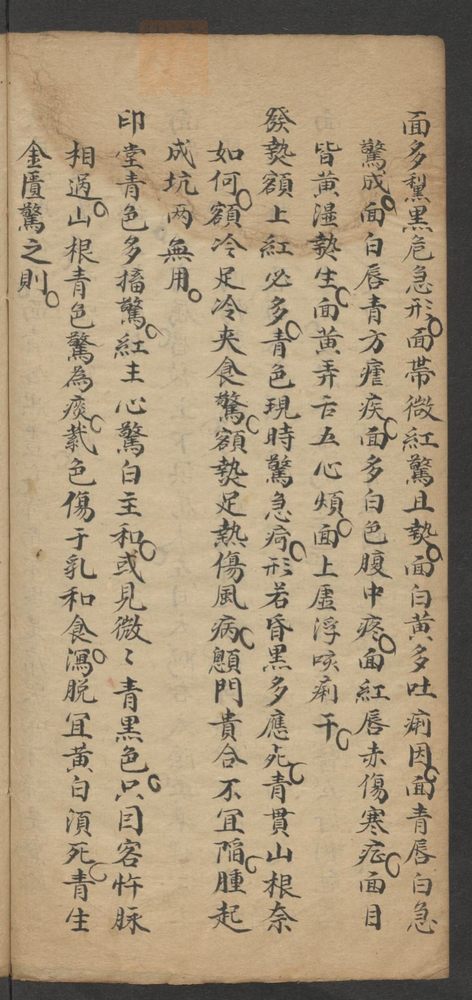 面多黧黑危急形。面帶微紅驚且熱。面白黃多吐痢因。面青唇白急
驚成。面白唇青方瘧疾。面多白色腹中疼。面紅唇赤傷寒症。面目
皆黃濕熱生。面黃弄舌五心煩。面上虛浮咳痢干。
發熱額上紅必多。青色現時驚急疴。形若昏黑多應死。青貫山根奈
如何。額冷足冷夾食驚。額熱足熱傷風病。顖門貴合不宜陷。腫起
成坑兩無用。
印堂青色多搐驚。紅主心驚白主和。或見微〻青黑色。只因客忤脉
相過。山根青色驚為痰。紫色傷于乳和食。瀉脱宜黃白須死。青生
金匱驚之則。